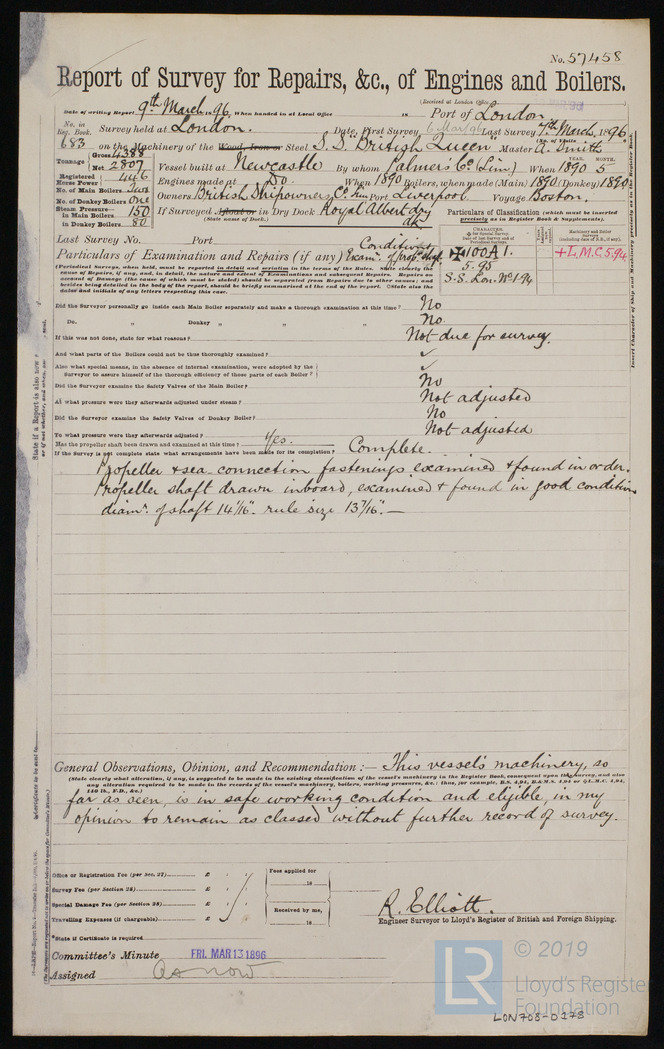 No. 57458
Report of Survey for Repairs, &c., of Engines and Boilers.
(Received at London Office
Date of writing Report 9th March 1896, When handed in at Local Office 18 Port of London
No. in Reg. Book. Survey held at London. Date, First Survey 6 Mar 96 Last Survey 7th March, 1896
(No. of Visits
683 on the Machinery of the Wood, Iron or Steel S.S. "British Queen" Master A. Smith
Tonnage Gross 4388 Net 2807
Vessel built at Newcastle By whom Palmer's Co. (Lim.) When 1890 5
YEAR. MONTH.
Registered Horse Power 446
Engines made at Do. When 1890 Boilers, when made (Main) 1890 (Donkey) 1890
No. of Main Boilers
No. of Donkey Boilers One
Owners British Shipowners Co. Lim Port Liverpool Voyage Boston.
Steam Pressure in Main Boilers 150
in Donkey Boilers 80
If Surveyed Afloat or in Dry Dock Royal Albert dry dk
(State name of Dock.)
Particulars of Classification (which must be inserted precisely as in Register Book & Supplements).
Last Survey No. Port
Particulars of Examination and Repairs (if any) Condition & Exam. of prop. shaft
✠100A1.
5.95
S.S. Lon. No.1-94
+L.M.C. 5.94
(Periodical Surveys, when held, must be reported in detail and seriatim in the terms of the Rules. State clearly the cause of Repairs, if any, and, in detail, the nature and extent of Examinations and subsequent Repairs. Repairs on account of Damage (the cause of which must be stated) should be separated from Repairs due to other causes; and besides being detailed in the body of the report, should be briefly summarised at the end of the report. State also the dates and initials of any letters respecting this case.
Did the Surveyor personally go inside each Main Boiler separately and make a thorough examination at this time? No
Do. " Donkey " " " " No.
If this was not done, state for what reasons? Not due for survey.
And what parts of the Boilers could not be thus thoroughly examined? ✓
Also what special means, in the absence of internal examination, were adopted by the Surveyor to assure himself of the thorough efficiency of those parts of each Boiler? ✓
Did the Surveyor examine the Safety Valves of the Main Boiler? No
At what pressure were they afterwards adjusted under steam? Not adjusted
Did the Surveyor examine the Safety Valves of Donkey Boiler? No
To what pressure were they afterwards adjusted? Not adjusted
Has the propeller shaft been drawn and examined at this time? Yes.
If the Survey is not complete state what arrangements have been made for its completion? Complete.
Propeller & sea connection fastenings examined & found in order.
Propeller shaft drawn inboard, examined & found in good condition
diamr. of shaft 14 1/16" rule size 13 7/16".—
General Observations, Opinion, and Recommendation :— This vessel's machinery, so
(State clearly what alteration, if any, is suggested to be made in the existing classification of the vessel's machinery in the Register Book, consequent upon this survey, and also any alteration required to be made in the records of the vessel's machinery, boilers, working pressures, &c.: thus, for example, B.S. 4,94, B.&M.S. 4,94 or L.M.C. 4,94, 140 lb., F.D., &c.)
far as seen, is in safe working condition and eligible, in my
opinion to remain as classed without further record of survey.
Office or Registration Fee (per Sec. 27) £
Survey Fee (per Section 28) £
Special Damage Fee (per Section 28) £
Travelling Expenses (if chargeable) £
Fees applied for 18
Received by me, 18
R. Elliott.
Engineer Surveyor to Lloyd's Register of British and Foreign Shipping.
*State if Certificate is required
Committee's Minute FRI. MAR 13 1896
Assigned As now
LR
© 2019
Lloyd's Register
Foundation
LON708-0273